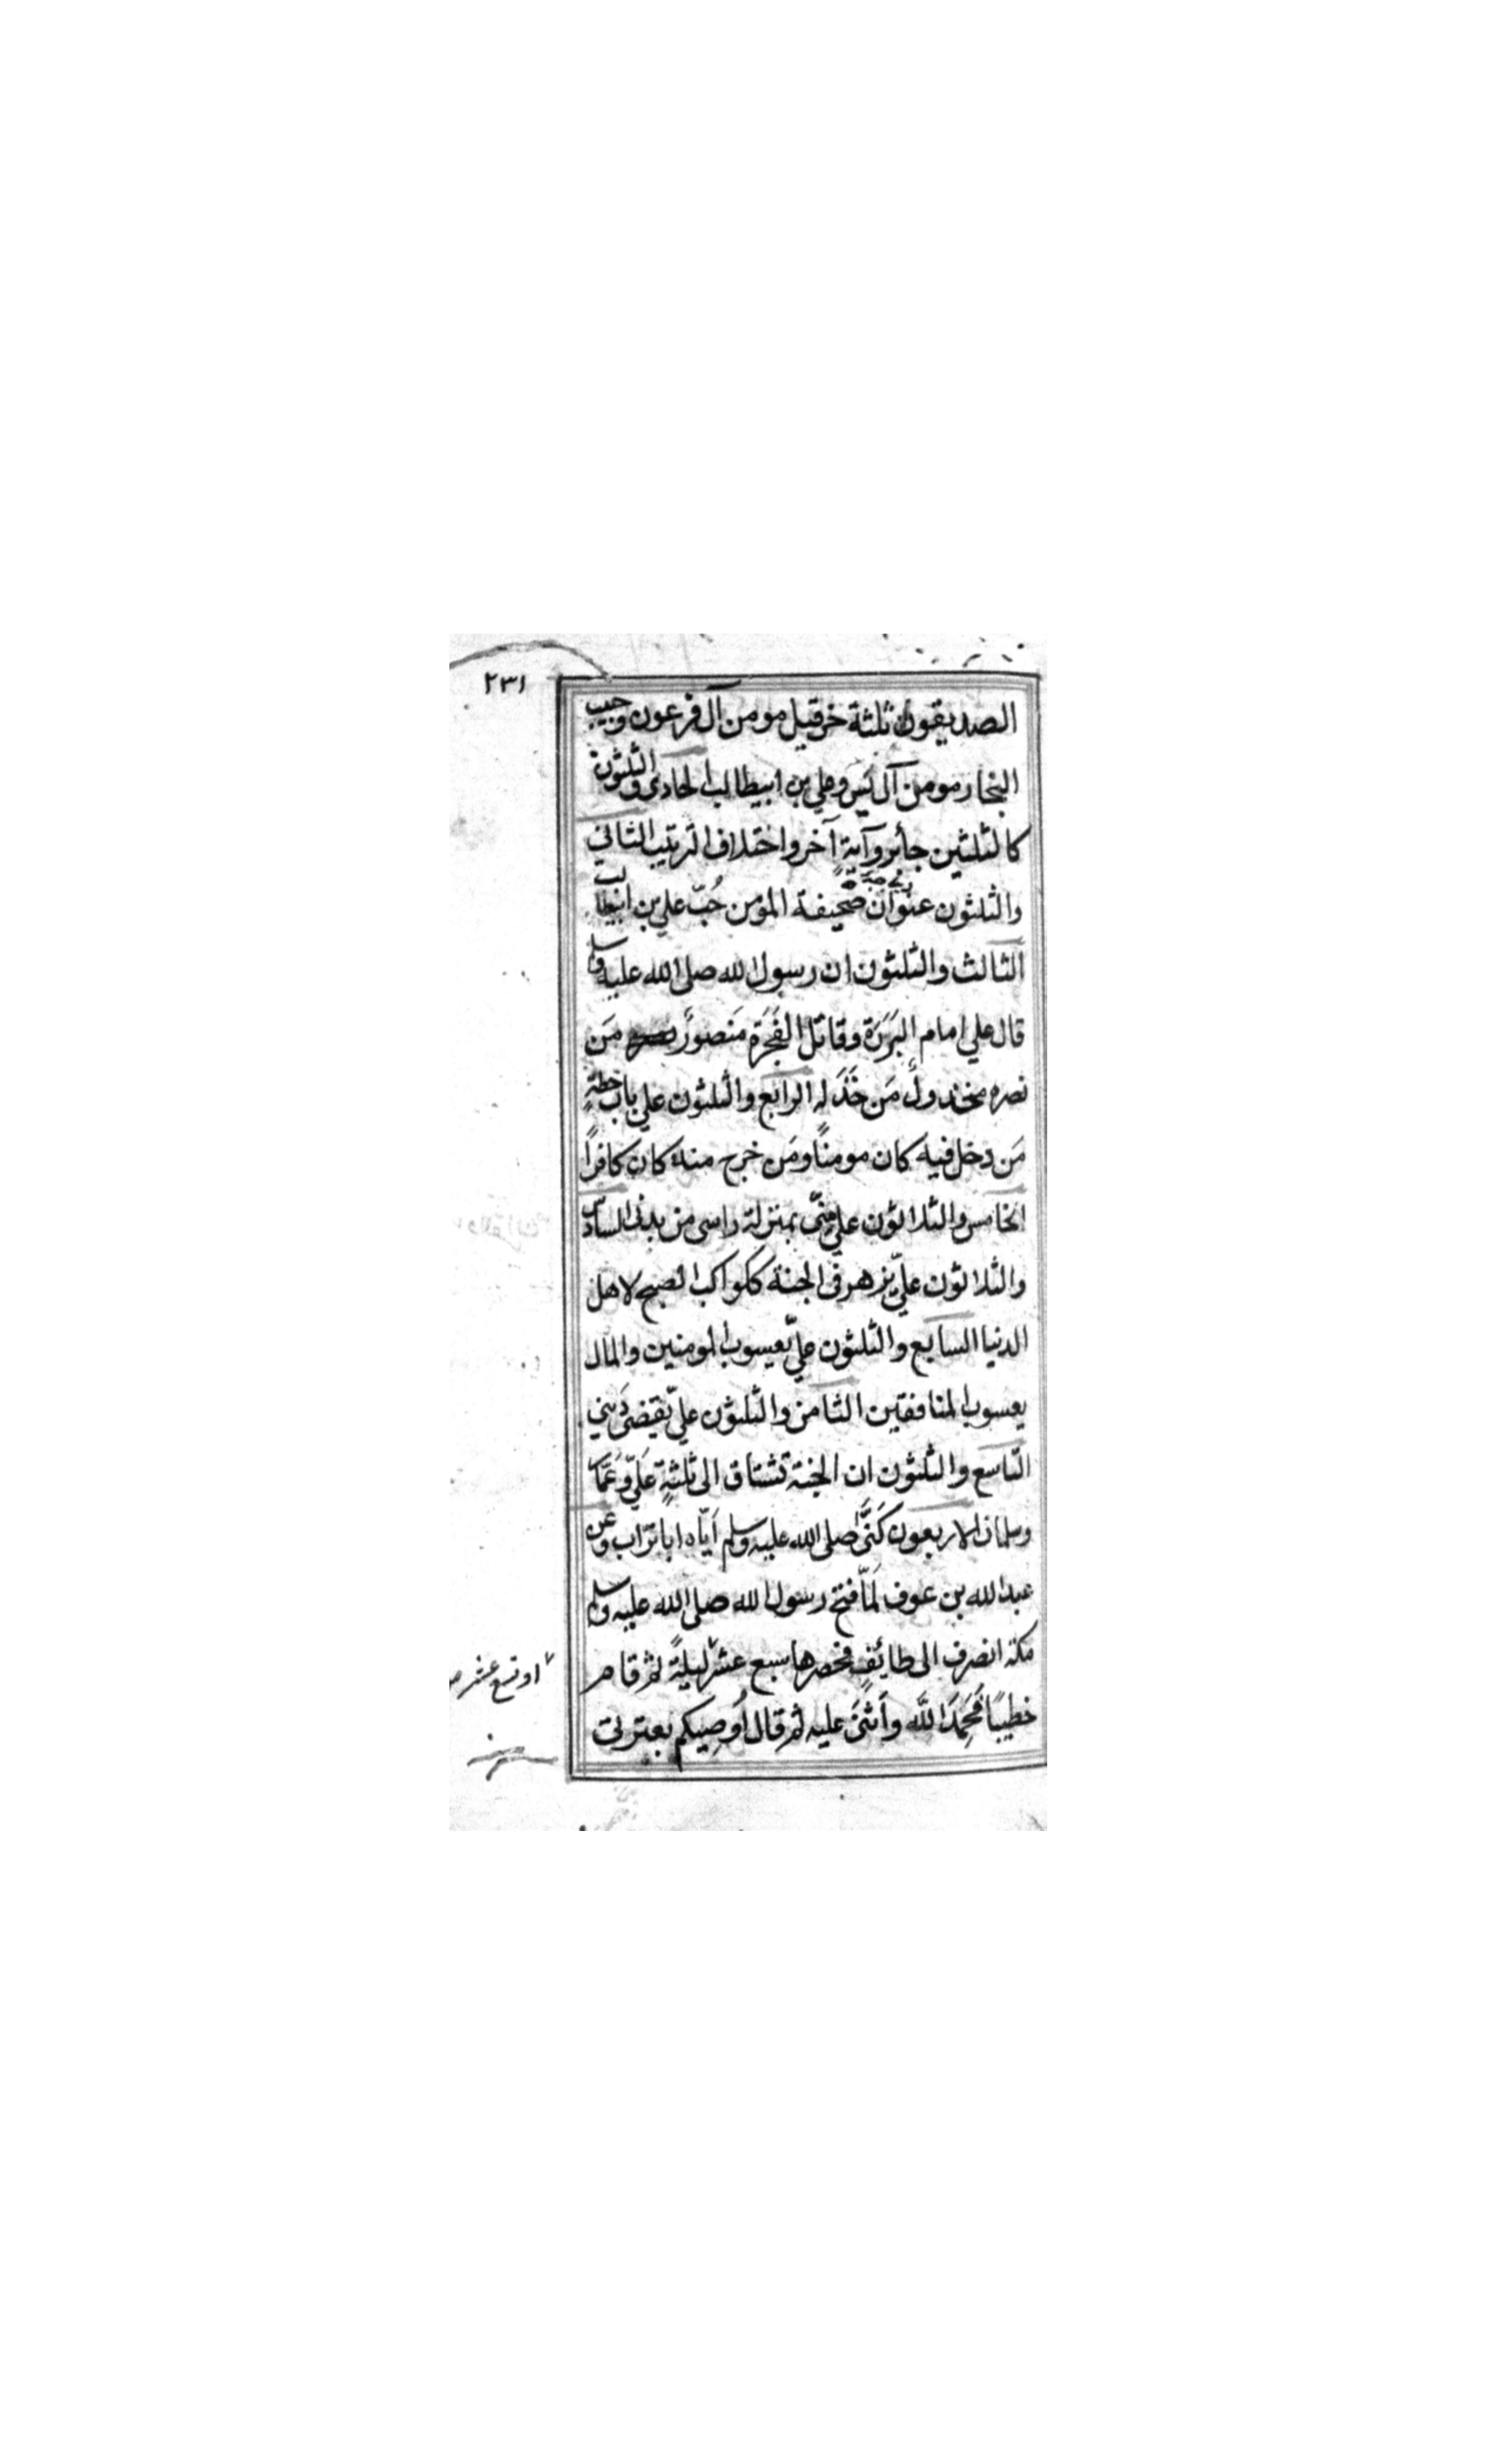 ٢٣١
الصديقون ثلثة خرقيل مومن آل فرعون وحبيب
النجار مومن آل يس وعلي بن ابيطالب الحادى والثلثون
كالثلثين جائر وآية آخر واختلاف الترتيب الثاني
والثلثون عنوان صحيفة المؤمن حُبّ علي بن ابيطالب
الثالث والثلثون ان رسول الله صلى الله عليه وسلم
قال علي امام البَرَرَة وقاتل الفَجَرَة مَنصورٌ مَن
نصره مخذولٌ مَن خَذَله الرابع والثلثون علي باب حطةٍ
مَن دخل فيه كان مومنًا ومَن خرج منه كان كافرًا
الخامس والثلاثون عليّ منّي بمنزلة راسى من بدنى السادس
والثلاثون عليّ يزهر فى الجنة ككواكب الصبح لاهل
الدنيا السابع والثلثون عليّ يعسوب المومنين والمال
يعسوب المنافقين الثامن والثلثون عليّ يقضى دَيني
التاسع والثلثون ان الجنة تشتاق الى ثلثةٍ عَليّ وعَمّار
وسلمان الاربعون كَنَّى صلى الله عليه وسلم ايّاه ابا تراب وعن
عبد الله بن عوف لمّا فتح رسول الله صلى الله عليه وسلم
مكة انصرف الى طائف فحصرها سبع عشر ليلةً ثم قام
او تسع عشر
خطيبًا فَحَمِدَ الله وأثنَى عليه ثم قال أوصيكم بعترتى